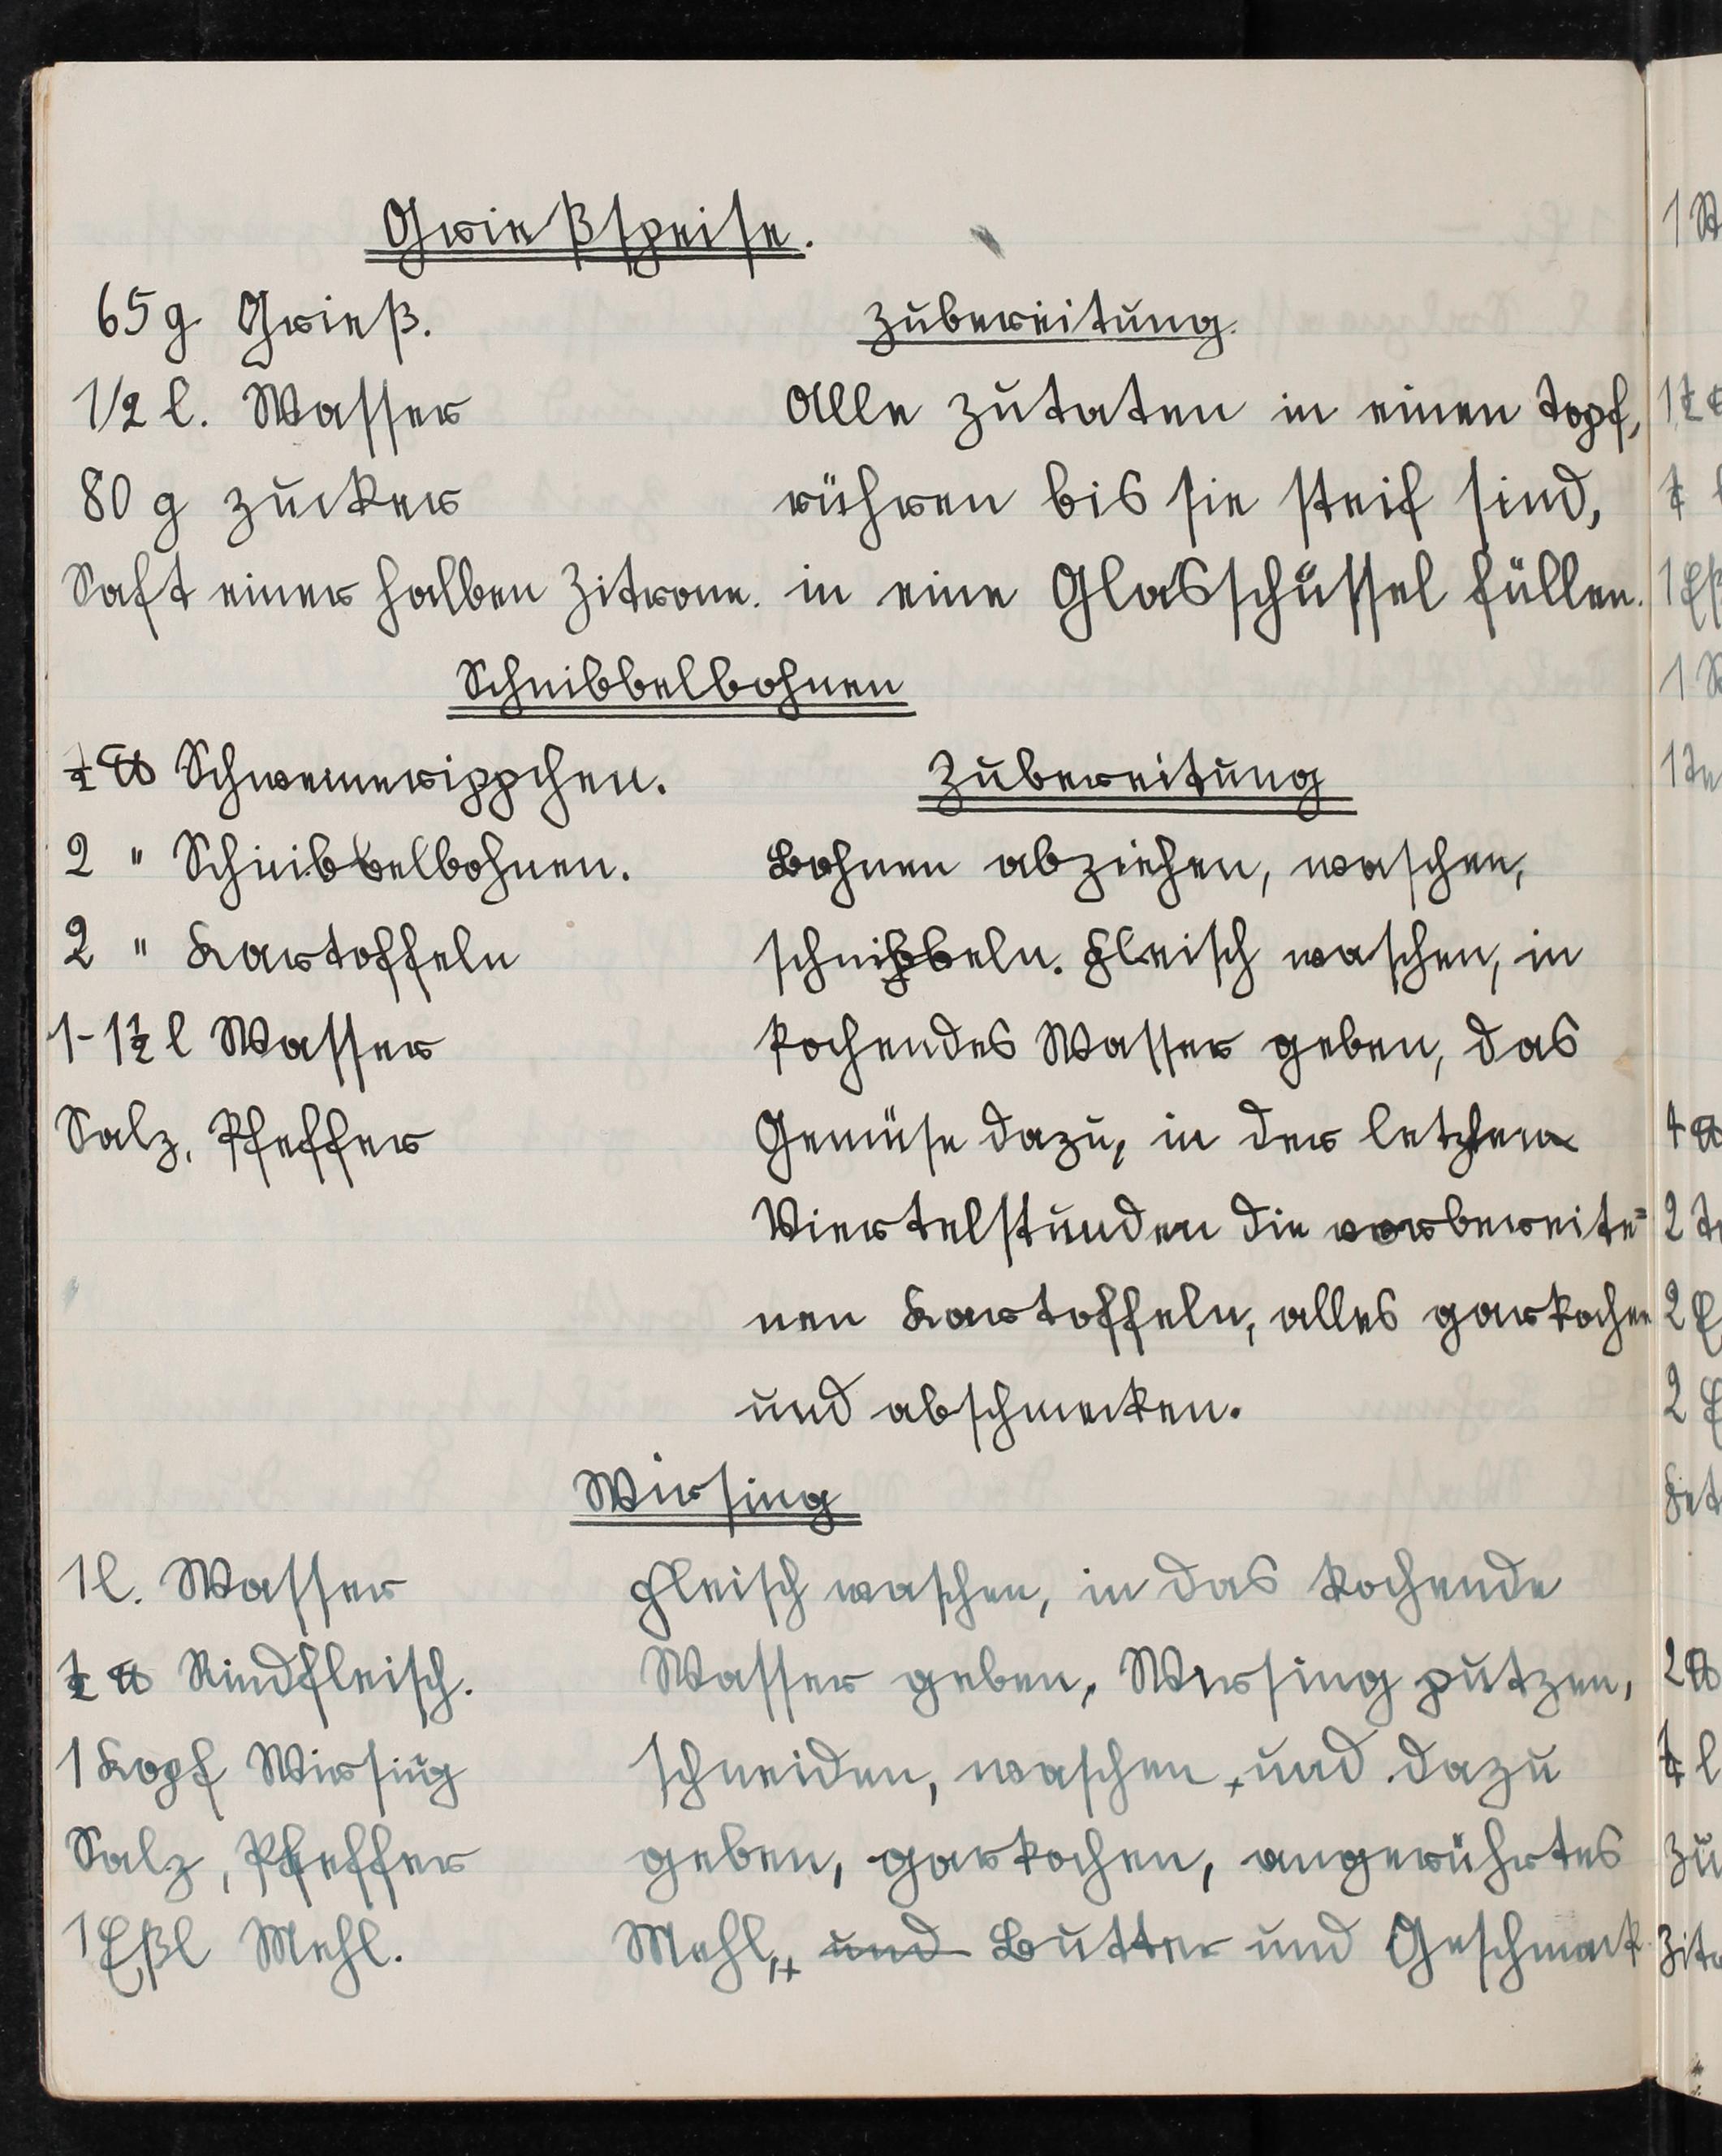 Grießspeise.
65 g Grieß.
1/2 l. Wasser
80 g Zucker
Saft einer halben Zitrone.
Zubereitung.
Alle Zutaten in einen Topf,
rühren bis sie steif sind,
in eine Glasschüssel füllen.
Schnibbelbohnen
½ ℔ Schweinerippchen.
2 " Schnibbelbohnen.
2 " Kartoffeln
1-1½ l Wasser
Salz, Pfeffer
Zubereitung
Bohnen abziehen, waschen,
schnibbeln. Fleisch waschen, in
kochendes Wasser geben, das
Gemüse dazu, in der letzten
Viertelstunden die vorbereite=
nen Kartoffeln, alles garkochen
und abschmecken.
Wirsing
1 l. Wasser
½ ℔ Rindfleisch.
1 Kopf Wirsing
Salz, Pfeffer
1 Eßl Mehl.
Fleisch waschen, in das kochende
Wasser geben, Wirsing putzen,
schneiden, waschen, und dazu
geben, garkochen, angerührtes
Mehl, und Butter und Geschmack